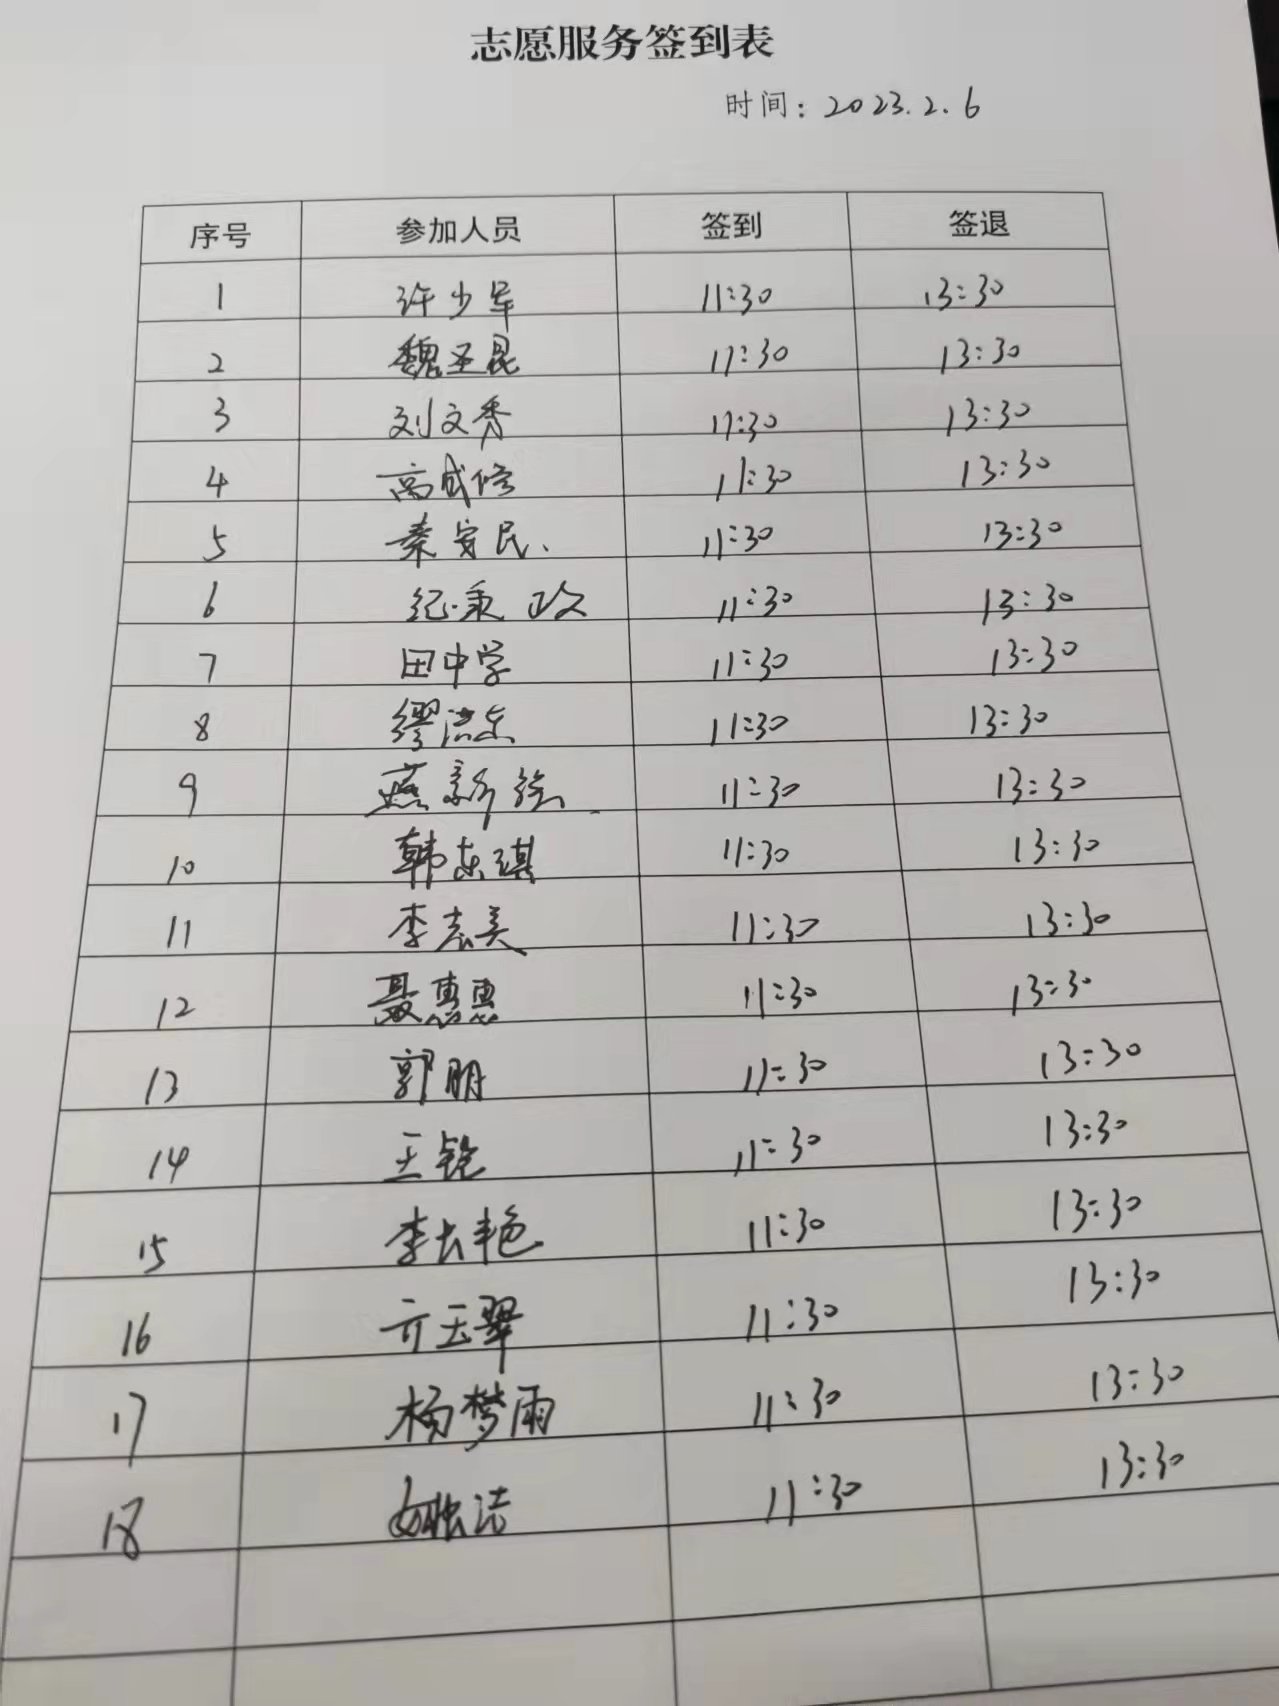 志愿服务签到表
时间：2023.2.6
序号 参加人员 签到 签退
1 许少军 11:30 13:30
2 魏圣昆 11:30 13:30
3 刘文秀 11:30 13:30
4 高成修 11:30 13:30
5 秦安民、 11:30 13:30
6 纪秉政 11:30 13:30
7 田中学 11:30 13:30
8 缪洪东 11:30 13:30
9 燕新 11:30 13:30
10 韩东琪 11:30 13:30
11 李志美 11:30 13:30
12 聂惠惠 11:30 13:30
13 郭朋 11:30 13:30
14 王锐 11:30 13:30
15 李长艳 11:30 13:30
16 亓玉翠 11:30 13:30
17 杨梦雨 11:30 13:30
18 11:30 13:30